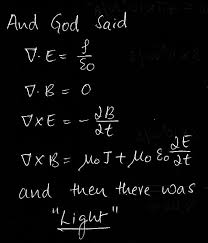 And God Said
∇·E = ρ/ε₀
∇·B = 0
∇×E = -∂B/∂t
∇×B = μ₀J + μ₀ε₀ ∂E/∂t
and then there was
"Light"